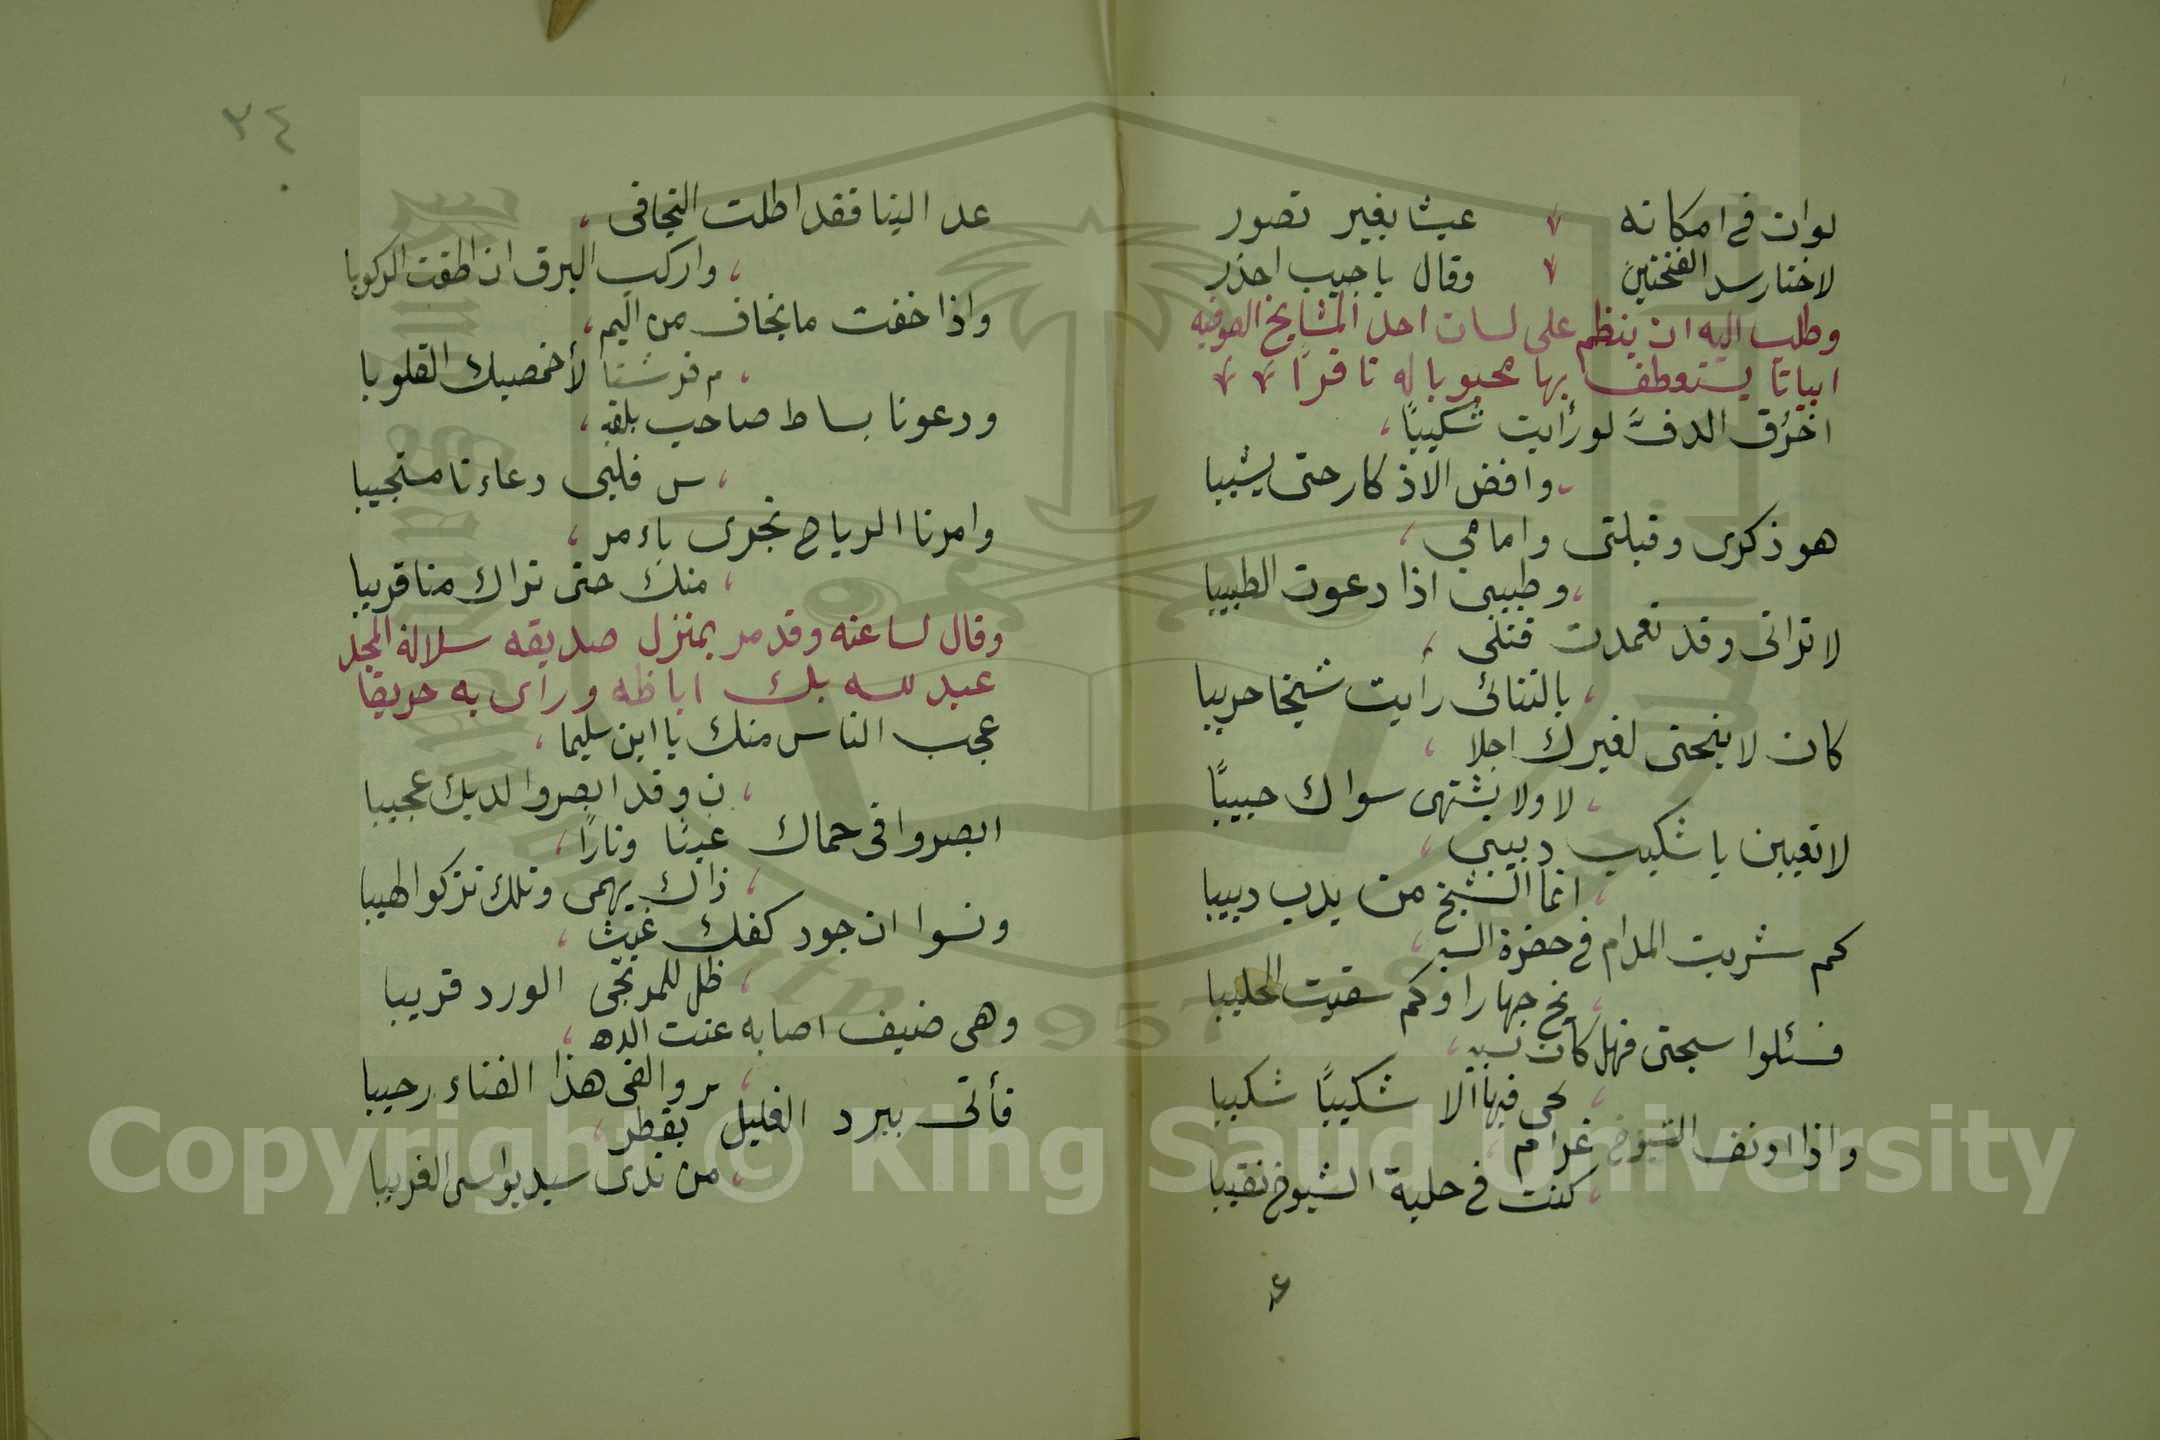 لوان في امكانه عيشا بغير تصور
لاختار سد الفتحتين وقال يا جيب احذر
وطلب اليه ان ينظم على لسان احد المشايخ الصوفيه
ابياتا يستعطف بها محبوبا له نافرًا
اخرُق الدفَّ لو رأيت شكيبًا
وافض الاذكار حتى يشيبا
هو ذكرى وقبلتى وامامى
وطبيبى اذا دعوت الطبيبا
لا ترانى وقد تعمدت قتلى
بالتنائى رأيت شيخا حريبا
كان لا ينحنى لغيرك اجلا
لا ولا يشتهى سواك حبيبًا
لا تعيبن يا شكيب دبيبى
انما الشيخ من يدب دبيبا
كم شربت المدام في حضرة الشيـ
ـخ جهارا وكم سقيت الحليبا
فسئلوا سبحتى فهل كان تسبيـ
ـحى فيها الا شكيبًا شكيبا
واذا ادنف الشيوخ غرام
كنت في حلبة الشيوخ نقيبا
٣٤
عد الينا فقد اطلت التجافى
واركب البرق ان اطقت الركوبا
واذا خفت ما نخاف من اليم
م فرشنا لأخمصيك القلوبا
ودعونا بساط صاحب بلقيـ
س فلبى دعاءنا مستجيبا
وامرنا الرياح تجرى بأمر
منك حتى نراك منا قريبا
وقال لساعته وقد مر بمنزل صديقه سلالة المجد
عبد لله بك اباظه ورأى به حريقا
عجب الناس منك يا ابن سليما
ن وقد ابصروا لديك عجيبا
ابصروا فى حماك غيثا ونارًا
ذاك يهمى وتلك تزكوا لهيبا
ونسوا ان جود كفك غيث
ظل للمرتجى الورد قريبا
وهى ضيف اصابه عنت الدهـ
ـر والفى هذا الفناء رحيبا
فأتى ببرد الغليل بقطر
من ندى سيد يواسى الغريبا
Copyright © King Saud University
1957